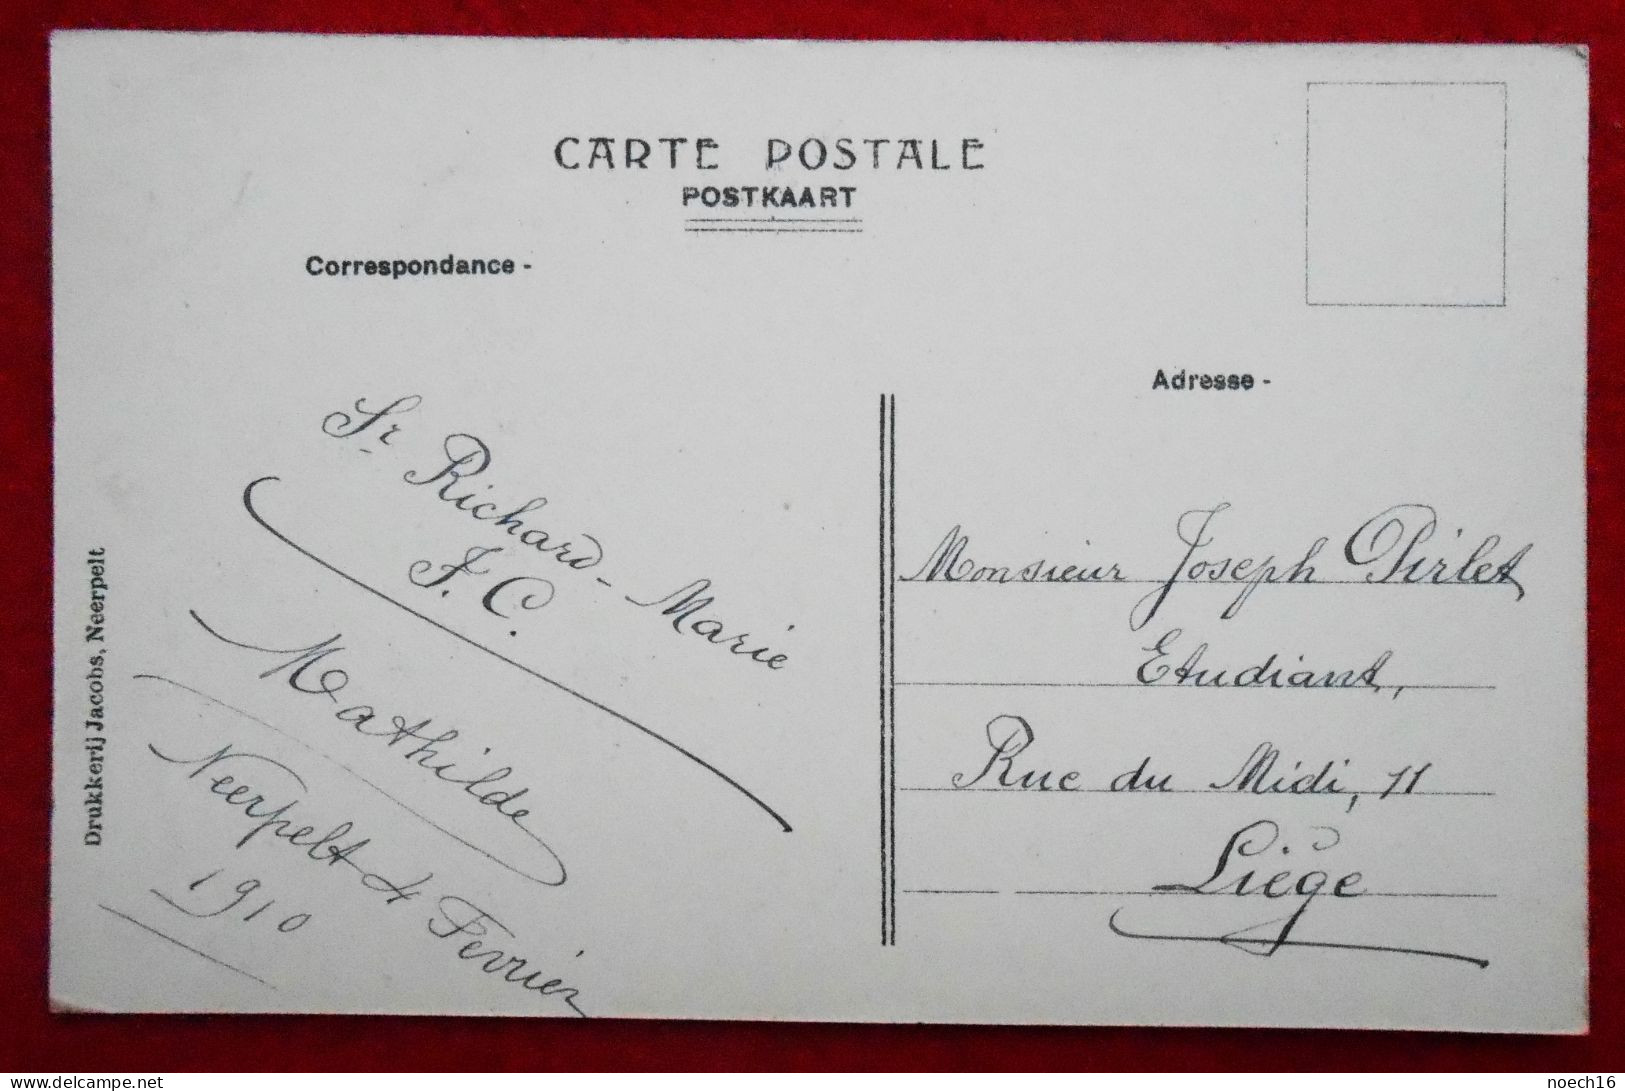 CARTE POSTALE
POSTKAART
Correspondance -
Sr Richard-Marie
J. C.
Mathilde
Neerpelt 4 Fevrier
1910
Drukkerij Jacobs, Neerpelt
Adresse -
Monsieur Joseph Pirlet
Etudiant,
Rue du Midi, 11
Liège
delcampe.net
noech16